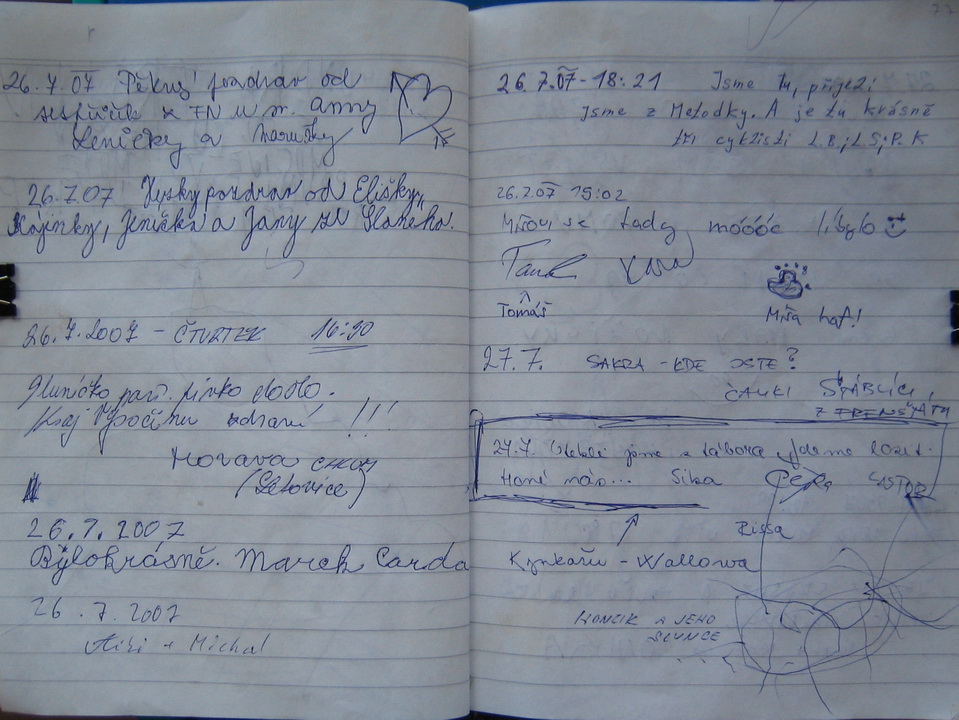 26.7.07 Pěkný pozdrav od
sestřiček z FN u sv. anny
Leničky a Marušky
26.7.07 Hezky pozdrav od Elišky,
Kájinky, Jeníčka a Jany ze Slaného.
26.7.2007 - ČTVRTEK 16:30
Sluníčko paří. pivko došlo.
Kraj Vysočinu zdraví !!!
Morava
(Letovice)
26.7.2007
Bylo krásně. Marek Carda
26.7.2007
+ Michal
22
26.7.07 - 18:21 Jsme tu, přijeli
Jsme z Metodky. A je tu krásně
tři cyklisti L.B.; L.S; P.K
26.7.07 19:02
Míšovi se tady móóóc líbylo
Tomáš
Míša haf!
27.7. SAKRA - KDE JSTE?
ČAUKI ŠTÁBLÍCI,
Z FRENŠTÁTU
27.7. Utekli jsme z tábora jdeme
Honí nás... Sika CASTOR
Bissa
Kynkařu - Wallowa
HONCIK A JEHO
SLUNCE